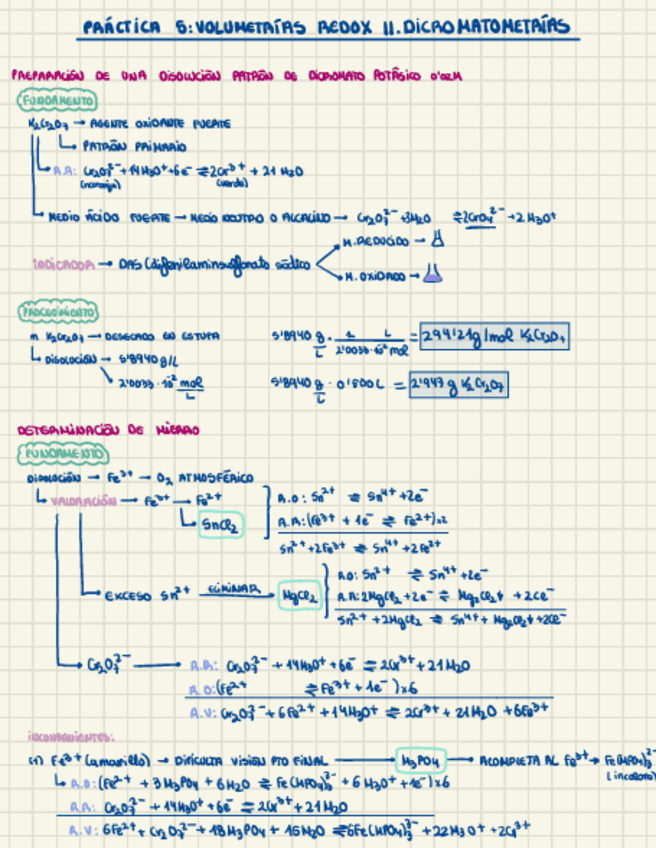 PRÁCTICA 5: VOLUMETRÍAS REDOX II. DICROMATOMETRÍAS
PREPARACIÓN DE UNA DISOLUCIÓN PATRÓN DE DICROMATO POTÁSICO 0'02M
FUNDAMENTO
K₂Cr₂O₇ → AGENTE OXIDANTE FUERTE
→ PATRÓN PRIMARIO
R.R: Cr₂O₇²⁻ + 14H₃O⁺ + 6e⁻ ⇌ 2Cr³⁺ + 21 H₂O
(naranja) (verde)
MEDIO ÁCIDO FUERTE → MEDIO NEUTRO O ALCALINO → Cr₂O₇²⁻ + 3H₂O ⇌ 2CrO₄²⁻ + 2 H₃O⁺
M.REDUCIDO →
INDICADOR → DAS (difenilaminsulfonato sódico
M.OXIDADO →
PROCEDIMIENTO
m K₂Cr₂O₇ → DESECADO EN ESTUFA 5'8940 g/L · 1 L / 2'0033·10⁻² mol = 294'21g/mol K₂Cr₂O₇
DISOLUCIÓN → 5'8940 g/L
2'0033·10⁻² mol/L 5'8940 g/L · 0'500L = 2'947 g K₂Cr₂O₇
DETERMINACIÓN DE HIERRO
FUNDAMENTO
DISOLUCIÓN → Fe³⁺ → O₂ ATMOSFÉRICO
VALORACIÓN → Fe³⁺ → Fe²⁺ R.O: Sn²⁺ ⇌ Sn⁴⁺ + 2e⁻
SnCl₂ R.R: (Fe³⁺ + 1e⁻ ⇌ Fe²⁺)×2
Sn²⁺ + 2Fe³⁺ ⇌ Sn⁴⁺ + 2Fe²⁺
R.O: Sn²⁺ ⇌ Sn⁴⁺ + 2e⁻
EXCESO Sn²⁺ ELIMINAR → HgCl₂ R.R: 2HgCl₂ + 2e⁻ ⇌ Hg₂Cl₂↓ + 2Cl⁻
Sn²⁺ + 2HgCl₂ ⇌ Sn⁴⁺ + Hg₂Cl₂↓ + 2Cl⁻
Cr₂O₇²⁻ → R.R: Cr₂O₇²⁻ + 14H₃O⁺ + 6e⁻ ⇌ 2Cr³⁺ + 21H₂O
R.O: (Fe²⁺ ⇌ Fe³⁺ + 1e⁻)×6
R.V: Cr₂O₇²⁻ + 6Fe²⁺ + 14H₃O⁺ ⇌ 2Cr³⁺ + 21H₂O + 6Fe³⁺
INCONVENIENTES:
(1) Fe³⁺ (amarillo) → DIFICULTA VISIÓN PTO FINAL → H₃PO₄ → ACOMPLEJA AL Fe³⁺ → Fe(HPO₄)₃³⁻
(incoloro)
R.O: (Fe²⁺ + 3H₃PO₄ + 6H₂O ⇌ Fe(HPO₄)₃³⁻ + 6 H₃O⁺ + 1e⁻)×6
R.R: Cr₂O₇²⁻ + 14H₃O⁺ + 6e⁻ ⇌ 2Cr³⁺ + 21H₂O
R.V: 6Fe²⁺ + Cr₂O₇²⁻ + 18H₃PO₄ + 15H₂O ⇌ 6Fe(HPO₄)₃³⁻ + 22H₃O⁺ + 2Cr³⁺